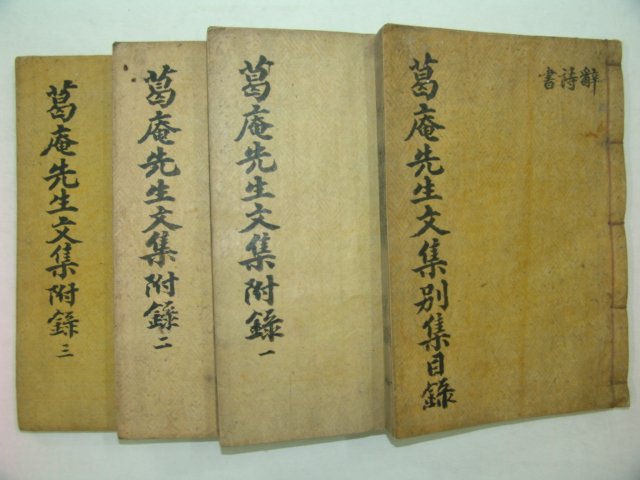 辭詩書
葛庵先生文集別集目錄
葛庵先生文集附錄 一
葛庵先生文集附錄 二
葛庵先生文集附錄 三